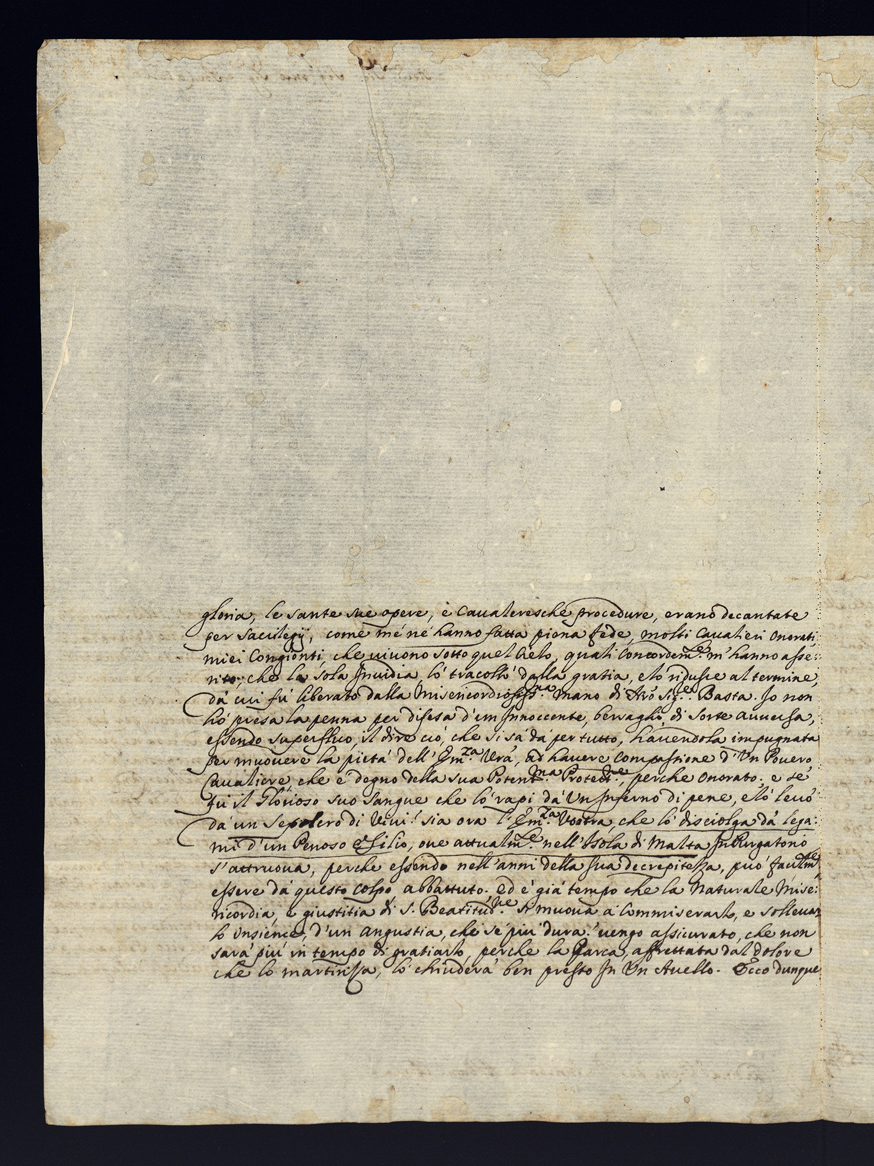 gloria, le sante sue opere, è Caualeresche procedure, erano decantate
per sacrilegij, come mé né hanno fatta piena fede, molti Cavalieri onorati
miei Congionti, che uiuono sotto quel Cielo, quali Concordem.te m'hanno asse:
rito, che la sola Invidia, lo tracollò dalla gratia, e lo ridusse al termine,
dá cui fú liberato dalla Misericordiosiss.ma mano di Basta. Io non
hó presa la penna per difesa d'un Innocente, bersaglio di sorte auuersa,
essendo superfluo, il dire ció, che si sá dá per tutto, havendola impugnata
per muouere la pietá dell' Em.za Vrá, ad hauere Compassione d'Vn Pouero
Caualiere che é degno della sua Potent.ma Protett.ne, perche onorato. e sé
fú il Glorioso suo sangue che ló rapí dá Vn Inferno di pene, e ló leuó
dá un Sepolcro di Viui! sia ora l'Em.za Vostra, che ló disciolga dá lega:
mi d'un Penoso Esilio, oue attualm.te nell'Isola di Malta In Purgatorio
s'attruoua, perche essendo nell'anni della sua decrepitezza, puó facilm.te
essere dá questo colpo abbattuto. ed é giá tempo che la Naturale Mise:
ricordia, e giustitia di S. Beatitud.ne si muoua á Commiserarlo, e solleuar
lo Insieme, d'un angustia, che sé piú dura! uengo assicurato, che non
sará piú in tempo di gratiarlo, perche la Parca, affrettata dal dolore
che ló martirizza, ló chiuderá ben presto In Vn Auello. Ecco dunque